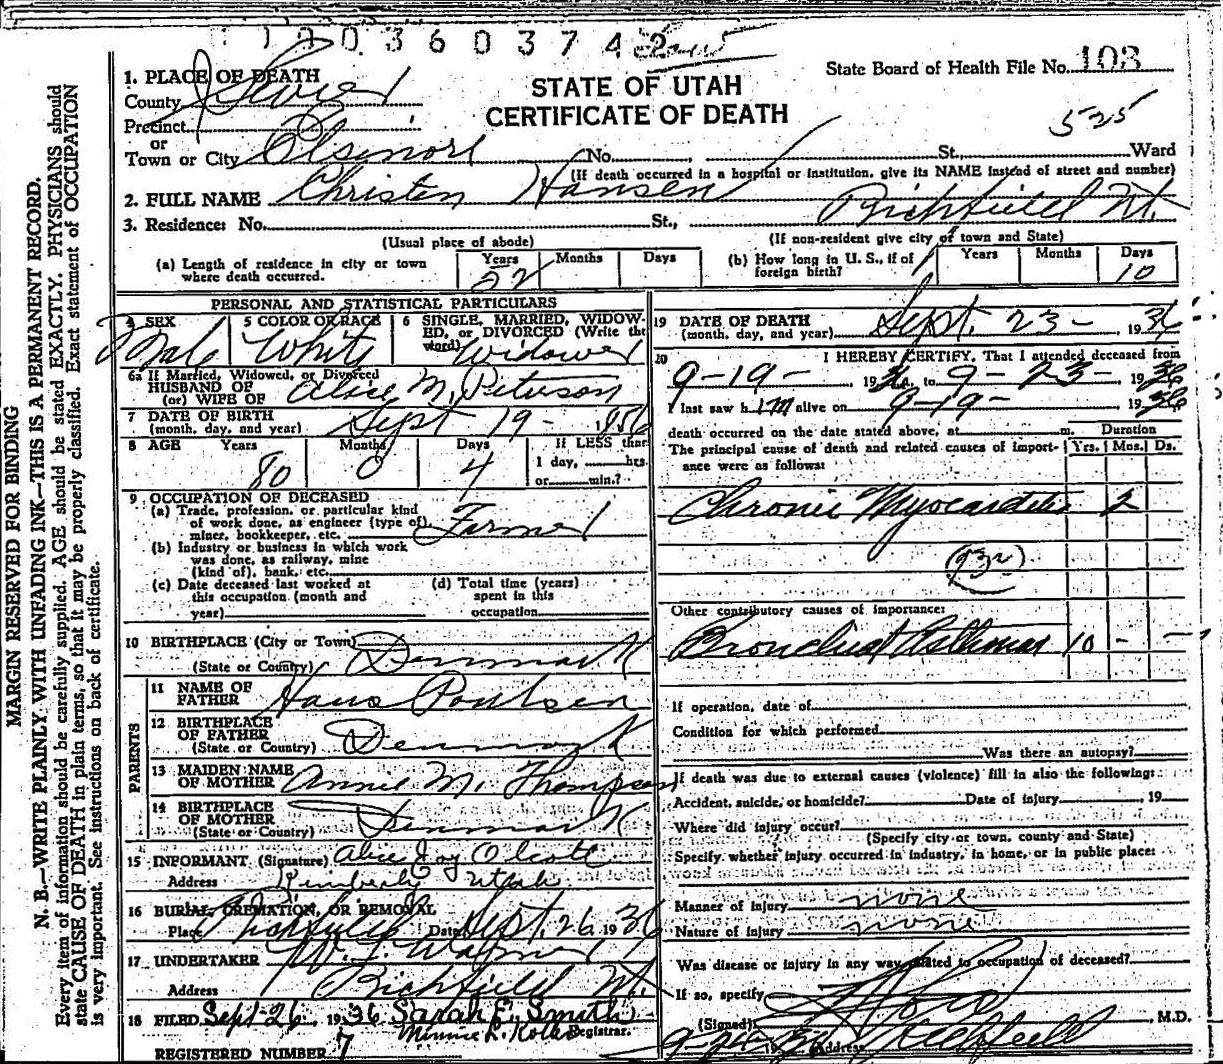 1 2 0 3 6 0 3 7 4 2
State Board of Health File No. 103
STATE OF UTAH
CERTIFICATE OF DEATH
525
1. PLACE OF DEATH
County Sevier
Precinct
or
Town or City Elsinore No. , St., Ward
(If death occurred in a hospital or institution, give its NAME instead of street and number)
2. FULL NAME Christen Hansen
3. Residence: No. St., Richfield Ut.
(Usual place of abode) (If non-resident give city or town and State)
(a) Length of residence in city or town where death occurred. Years Months Days
(b) How long in U. S., if of foreign birth? Years Months Days 10
PERSONAL AND STATISTICAL PARTICULARS
4 SEX Male
5 COLOR OR RACE White
6 SINGLE, MARRIED, WIDOWED, or DIVORCED (Write the word) Widower
6a If Married, Widowed, or Divorced
HUSBAND OF
(or) WIFE OF Alice M. Peterson
7 DATE OF BIRTH
(month, day, and year) Sept 19 - 1856
8 AGE Years 80 Months 0 Days 4
If LESS than 1 day, hrs. or min.?
9 OCCUPATION OF DECEASED
(a) Trade, profession, or particular kind of work done, as engineer (type of) miner, bookkeeper, etc. Farmer
(b) Industry or business in which work was done, as railway, mine (kind of), bank, etc.
(c) Date deceased last worked at this occupation (month and year)
(d) Total time (years) spent in this occupation
10 BIRTHPLACE (City or Town)
(State or Country) Denmark
PARENTS
11 NAME OF FATHER Hans Poulsen
12 BIRTHPLACE OF FATHER
(State or Country) Denmark
13 MAIDEN NAME OF MOTHER Annie M. Thompson
14 BIRTHPLACE OF MOTHER
(State or Country) Denmark
15 INFORMANT (Signature) Alice Joy Olcott
Address Kimberly Utah
16 BURIAL, CREMATION, OR REMOVAL
Place Richfield Date Sept. 26, 1936
17 UNDERTAKER
Address Richfield Ut.
18 FILED Sept-26 1936 Sarah E. Smith
Registrar.
REGISTERED NUMBER 7
19 DATE OF DEATH
(month, day, and year) Sept. 23 - 1936
20 I HEREBY CERTIFY, That I attended deceased from
9-19- 1936, to 9-23- 1936
I last saw him alive on 9-19- 1936
death occurred on the date stated above, at m. Duration
The principal cause of death and related causes of importance were as follows: Yrs. Mos. Ds.
Chronic Myocarditis 2
Other contributory causes of importance:
Bronchial Asthma 10 - -
If operation, date of
Condition for which performed
Was there an autopsy?
If death was due to external causes (violence) fill in also the following:
Accident, suicide, or homicide? Date of injury , 19
Where did injury occur?
(Specify city or town, county and State)
Specify whether injury occurred in industry, in home, or in public place:
Manner of injury none
Nature of injury none
Was disease or injury in any way related to occupation of deceased?
If so, specify
(Signed) , M.D.
Address Richfield
MARGIN RESERVED FOR BINDING
N. B.—WRITE PLAINLY WITH UNFADING INK—THIS IS A PERMANENT RECORD.
Every item of information should be carefully supplied. AGE should be stated EXACTLY. PHYSICIANS should
state CAUSE OF DEATH in plain terms, so that it may be properly classified. Exact statement of OCCUPATION
is very important. See instructions on back of certificate.